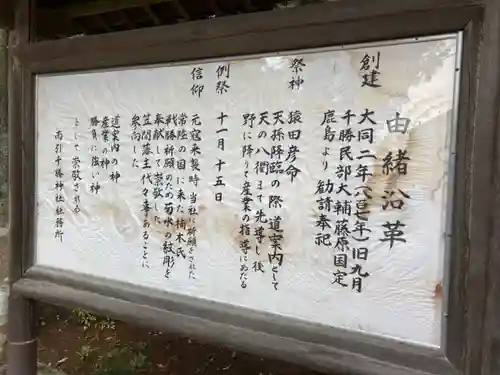 由緒沿革
創建
大同二年(八〇七年)旧九月
千勝民部大輔藤原国定
鹿島より勧請奉祀
祭神
猿田彦命
天孫降臨の際道案内として
天の八衢まで先導し後
野に降りて産業の指導にあたる
例祭
十一月十五日
信仰
元寇来襲時当社に祈願をされた
常陸の国に来た楠木氏
戦勝祈願のため菊水の紋彫を
奉献して崇敬した
笠間藩主代々事あるごとに
参向した
道案内の神
産業の神
勝負に強い神
として崇敬される
南引千勝神社社務所